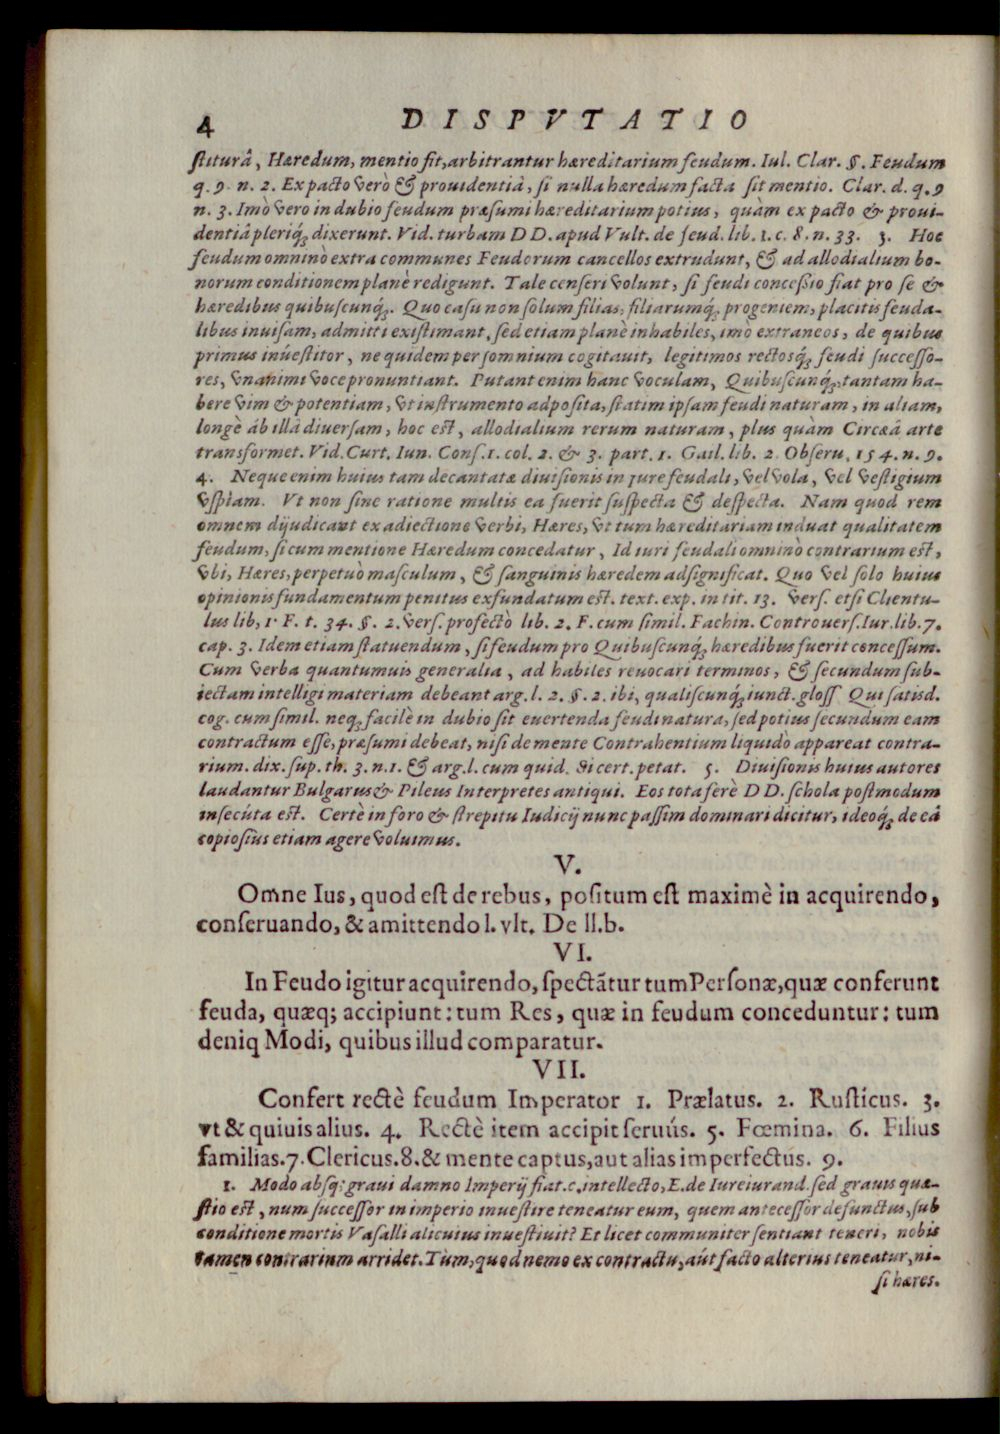 4 DISPVTATIO
ſtiturâ, Hæredum, mentio fit, arbitrantur hæreditarium feudum. Iul. Clar. §. Feudum
q. 9. n. 2. Ex pacto verò & prouidentiâ, ſi nulla hæredum facta ſit mentio. Clar. d. q. 9
n. 3. Imò vero in dubio feudum præſumi hæreditarium potius, quàm ex pacto & proui-
dentiâ pleriq́; dixerunt. Vid. turbam DD. apud Vult. de feud. lib. 1. c. 8. n. 33. 3. Hoc
feudum omninò extra communes Feudorum cancellos extrudunt, & ad allodialium bo-
norum conditionem planè redigunt. Tale cenſeri volunt, ſi feudi conceſsio fiat pro ſe &
hæredibus quibuſcunq́;. Quo caſu non ſolum filias, filiarumq́; progeniem, placitis feuda-
libus inuiſam, admitti exiſtimant, ſed etiam planè inhabiles, imò extraneos, de quibus
primus inueſtitor, ne quidem per ſomnium cogitauit, legitimos rectosq́; feudi ſucceſſo-
res, vnanimi voce pronuntiant. Putant enim hanc voculam, Quibuſcunq́;, tantam ha-
bere vim & potentiam, vt inſtrumento adpoſita, ſtatim ipſam feudi naturam, in aliam,
longè ab illâ diuerſam, hoc eſt, allodialium rerum naturam, plus quàm Circæâ arte
transformet. Vid. Curt. Iun. Conſ. 1. col. 2. & 3. part. 1. Gail. lib. 2. Obſeru. 154. n. 9.
4. Neque enim huius tam decantatæ diuiſionis in jure feudali, vel vola, vel veſtigium
vſpiam. Vt non ſine ratione multis ea fuerit ſuſpecta & deſpecta. Nam quod rem
omnem dijudicant ex adiectione verbi, Hæres, vt tum hæreditariam induat qualitatem
feudum, ſi cum mentione Hæredum concedatur, Id iuri feudali omninò contrarium eſt,
vbi, Hæres, perpetuò maſculum, & ſanguinis hæredem adſignificat. Quo vel ſolo huius
opinionis fundamentum penitus exfundatum eſt. text. exp. in tit. 13. verſ. etſi Clientu-
lus lib, 1. F. t. 34. §. 2. verſ. profectò lib. 2. F. cum ſimil. Fachin. Controuerſ. Iur. lib. 7.
cap. 3. Idem etiam ſtatuendum, ſi feudum pro Quibuſcunq́; hæredibus fuerit conceſſum.
Cum verba quantumuis generalia, ad habiles reuocari terminos, & ſecundum ſub-
iectam intelligi materiam debeant arg. l. 2. §. 2. ibi, qualiſcunq́; iunct. gloſſ. Qui ſatisd.
cog. cum ſimil. neq́; facilè in dubio ſit euertenda feudi natura, ſed potius ſecundum eam
contractum eſſe, præſumi debeat, niſi de mente Contrahentium liquidò appareat contra-
rium. dix. ſup. th. 3. n. 1. & arg. l. cum quid. Si cert. petat. 5. Diuiſionis huius autores
laudantur Bulgarus & Pileus Interpretes antiqui. Eos tota ferè DD. ſchola poſtmodum
inſecúta eſt. Certè in foro & ſtrepitu Iudicij nunc paſſim dominari dicitur, ideoq́; de eâ
copioſius etiam agere voluimus.
V.
Omne Ius, quod eſt de rebus, poſitum eſt maximè in acquirendo,
conſeruando, & amittendo l. vlt. De ll. b.
VI.
In Feudo igitur acquirendo, ſpectãtur tum Perſonæ, quæ conferunt
feuda, quæq; accipiunt: tum Res, quæ in feudum conceduntur: tum
deniq Modi, quibus illud comparatur.
VII.
Confert rectè feudum Imperator 1. Prælatus. 2. Ruſticus. 3.
vt & quiuis alius. 4. Rectè item accipit ſeruús. 5. Fœmina. 6. Filius
familias. 7. Clericus. 8. & mente captus, aut alias imperfectus. 9.
1. Modo abſq; graui damno Imperij fiat. c. intellecto, E. de Iureiurand. ſed grauis quæ-
ſtio eſt, num ſucceſſor in imperio inueſtire teneatur eum, quem anteceſſor defunctus, ſub
conditione mortis Vaſalli alicuius inueſtiuit? Et licet communiter ſentiant teneri, nobis
tamen contrarium arridet. Tùm, quod nemo ex contractu, aút facto alterius teneatur, ni-
ſi hæres.